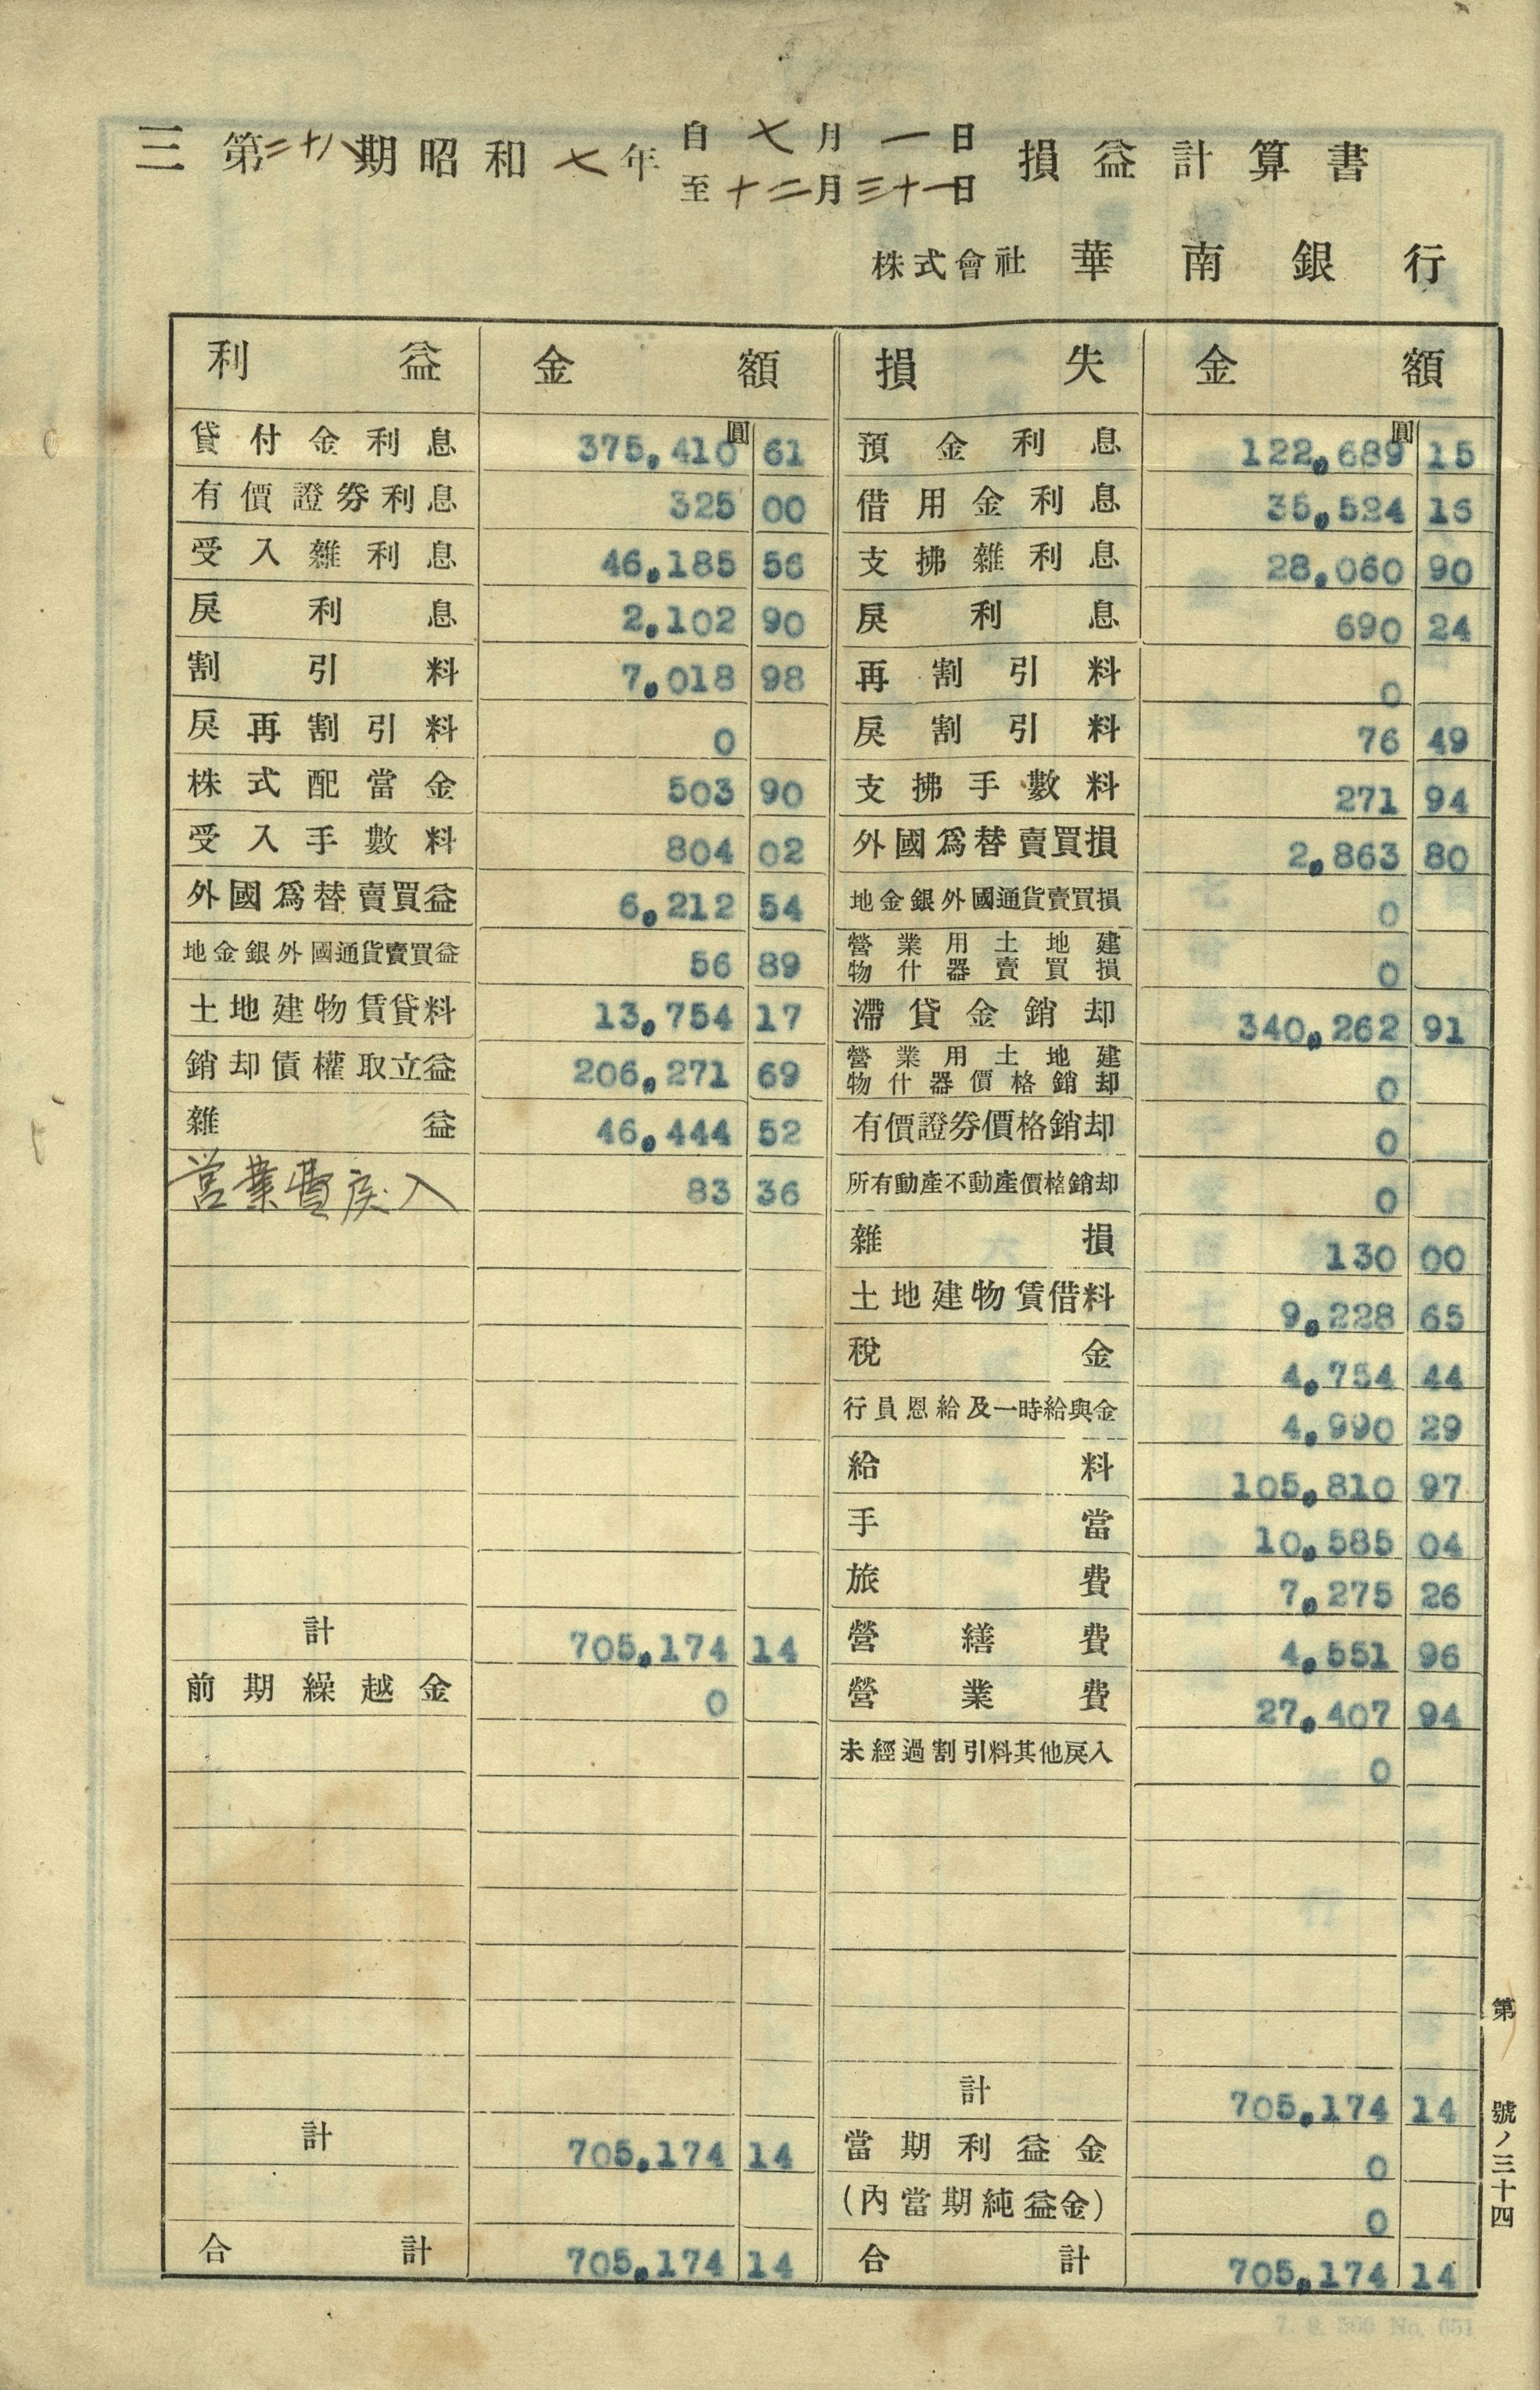 三 第二十八期昭和七年 自七月一日 至十二月三十一日 損益計算書
株式會社 華南銀行
利益 金額 損失 金額
貸付金利息 375,410圓 61 預金利息 122,689圓 15
有價證券利息 325 00 借用金利息 35,524 16
受入雜利息 46,185 56 支拂雜利息 28,060 90
戾利息 2,102 90 戾利息 690 24
割引料 7,018 98 再割引料 0
戾再割引料 0 戾割引料 76 49
株式配當金 503 90 支拂手數料 271 94
受入手數料 804 02 外國爲替賣買損 2,863 80
外國爲替賣買益 6,212 54 地金銀外國通貨賣買損 0
地金銀外國通貨賣買益 56 89 營業用土地建物什器賣買損 0
土地建物賃貸料 13,754 17 滯貸金銷却 340,262 91
銷却債權取立益 206,271 69 營業用土地建物什器價格銷却 0
雜益 46,444 52 有價證券價格銷却 0
営業費戾入 83 36 所有動產不動產價格銷却 0
雜損 130 00
土地建物賃借料 9,228 65
稅金 4,754 44
行員恩給及一時給與金 4,990 29
給料 105,810 97
手當 10,585 04
旅費 7,275 26
計 705,174 14 營繕費 4,551 96
前期繰越金 0 營業費 27,407 94
未經過割引料其他戾入 0
計 705,174 14
計 705,174 14 當期利益金 0
(內當期純益金) 0
合計 705,174 14 合計 705,174 14
第 號ノ三十四
7. 9. 500 No. 651